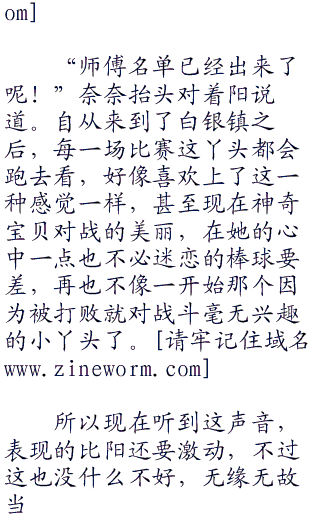 om]
“师傅名单已经出来了
呢！”奈奈抬头对着阳说
道。自从来到了白银镇之
后，每一场比赛这丫头都会
跑去看，好像喜欢上了这一
种感觉一样，甚至现在神奇
宝贝对战的美丽，在她的心
中一点也不必迷恋的棒球要
差，再也不像一开始那个因
为被打败就对战斗毫无兴趣
的小丫头了。[请牢记住域名
www.zineworm.com]
所以现在听到这声音，
表现的比阳还要激动，不过
这也没什么不好，无缘无故
当